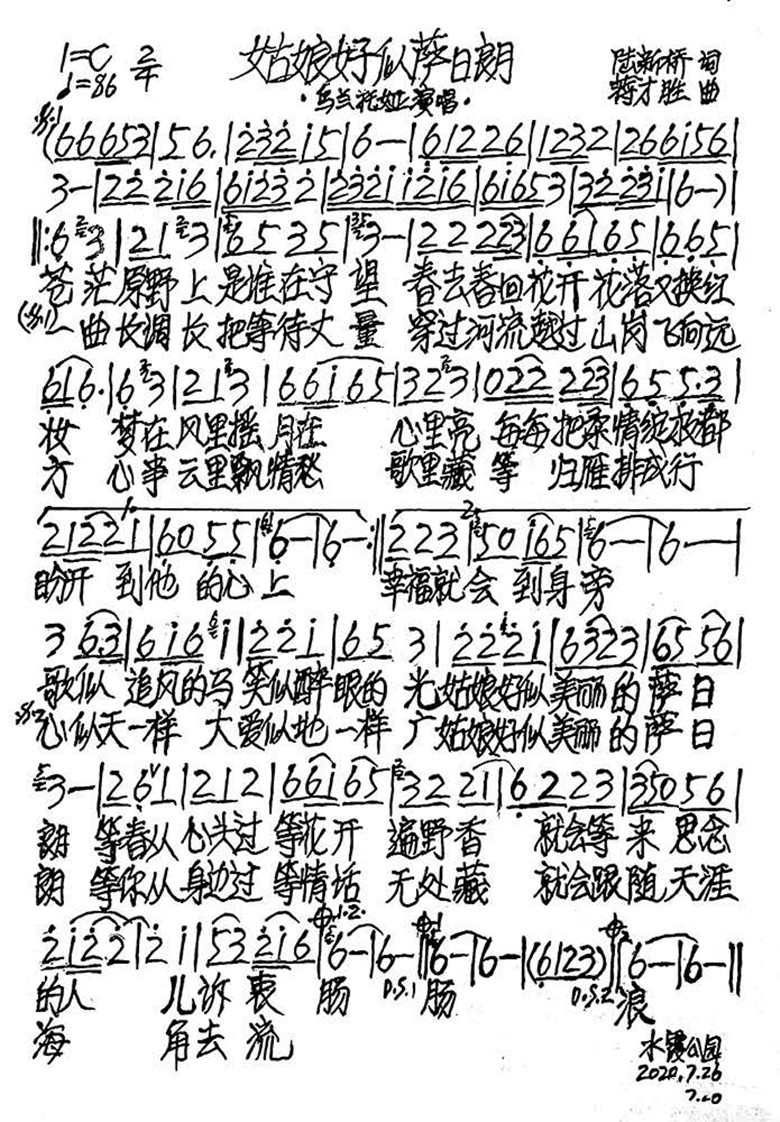 1=C 2/4 姑娘好似萨日朗 陆新桥 词
♩=86 ·乌兰托娅演唱· 蒋才胜 曲
(66653|56.|23215|6-|61226|1232|266156|
3-|22216|61232|23211216|61653|322231|6-)|
||:63|213|6535|3-|22223|66165|665|
苍茫原野上是谁在守望 春去春回花开花落又换红
一曲长调长把等待丈量 穿过河流越过山岗飞向远
616.|63|213|66165|323|022223|655.3|
妆 梦在风里摇月在 心里亮 每每把柔情绽放都
方 心事云里飘情愁 歌里藏 等 归雁排成行
21221|6055|6-|6-:||223|50165|6-|6--|
盼开到他的心上 幸福就会到身旁
3 63|6161|221|653|2221|6323|6556|
歌似追风的马笑似醉眼的光姑娘好似美丽的萨日
心似天一样 大爱似地一样广姑娘好似美丽的萨日
3-|261|212|66165|32221|6223|35056|
朗 等春从心头过等花开遍野香 就会等来思念
朗 等你从身边过等情话无处藏 就会跟随天涯
2122|21|53216|6-|6-||6-|6-|(6123)||6-|6-||
D.S.1 D.S.2
的人 儿诉衷肠 肠 浪
海 角去流
水霞公园
2020.7.26
7.20